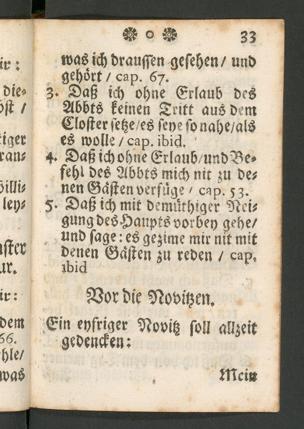 ❁ o ❁ 33
was ich draussen gesehen / und
gehört / cap. 67.
3. Daß ich ohne Erlaub des
Abbts keinen Tritt aus dem
Closter setze / es seye so nahe / als
es wolle / cap. ibid.
4. Daß ich ohne Erlaub / und Be-
fehl des Abbts mich nit zu de-
nen Gästen verfüge / cap. 53.
5. Daß ich mit demüthiger Nei-
gung des Haupts vorbey gehe /
und sage : es gezime mir nit mit
denen Gästen zu reden / cap.
ibid
Vor die Novitzen.
Ein eyfriger Novitz soll allzeit
gedencken:
Mein